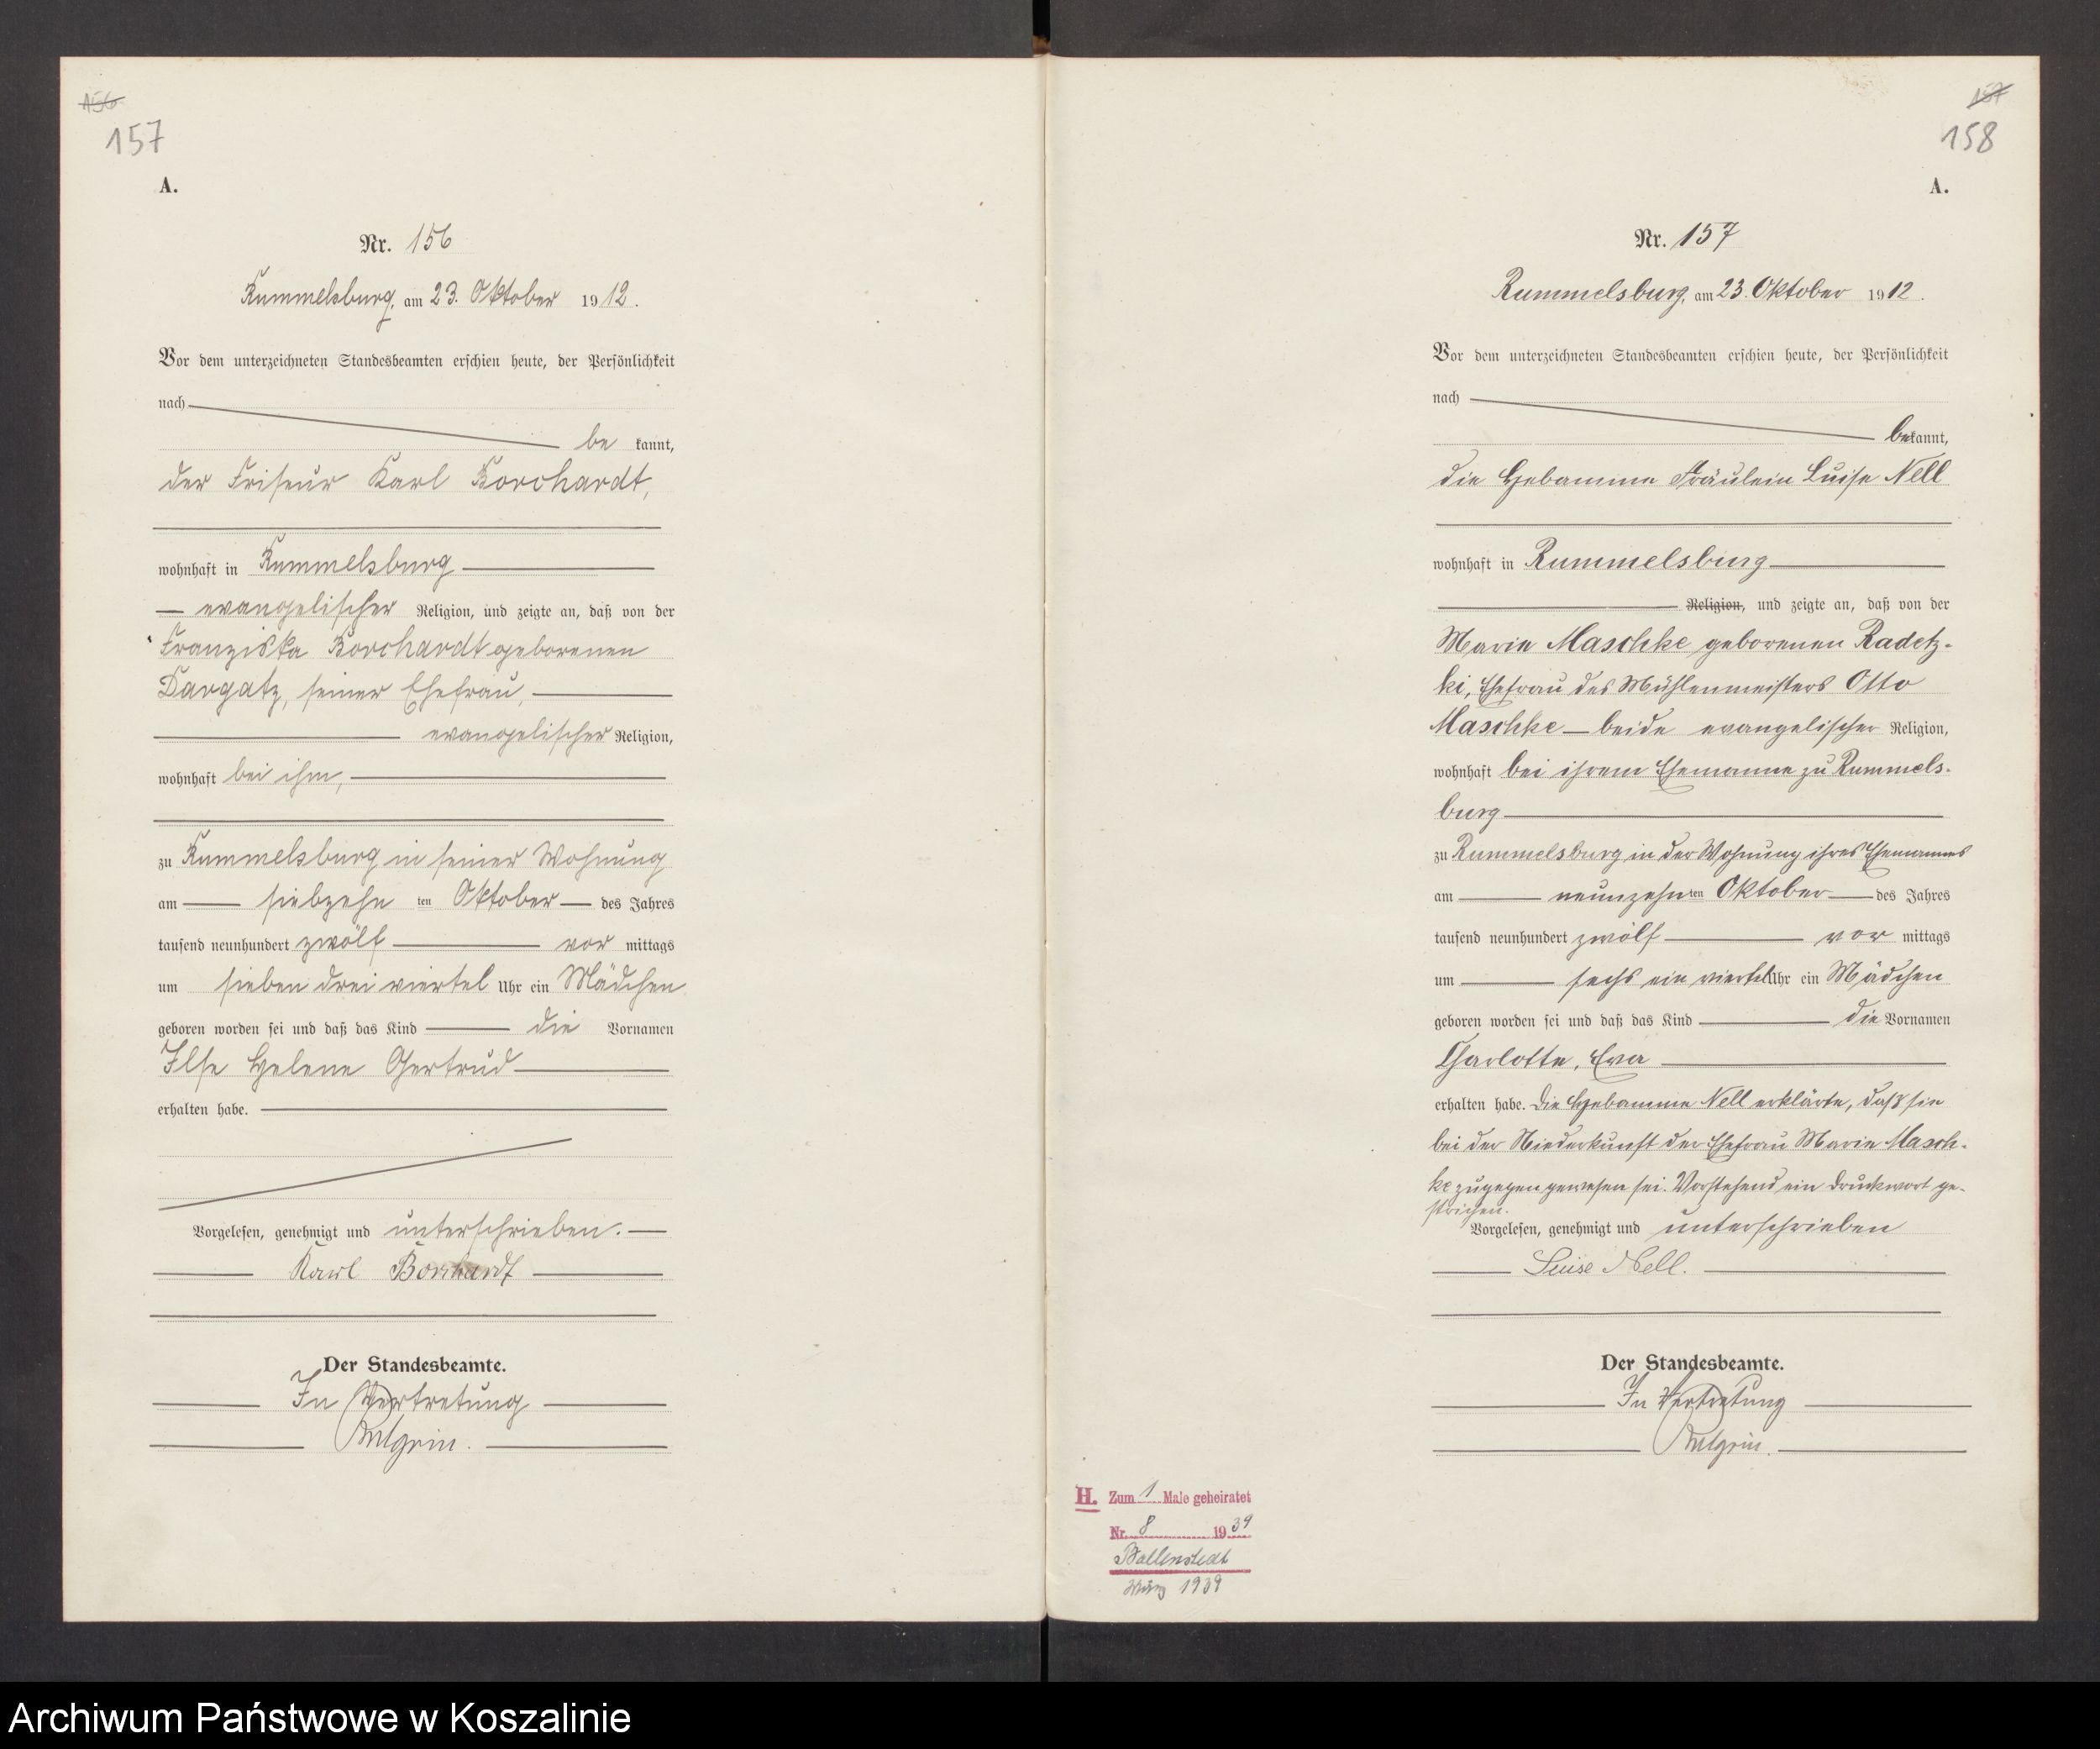 156
157
A.
Nr. 156
Rummelsburg, am 23. Oktober 1912.
Vor dem unterzeichneten Standesbeamten erschien heute, der Persönlichkeit
nach
be kannt,
der Friseur Karl Borchardt,
wohnhaft in Rummelsburg
evangelischer Religion, und zeigte an, daß von der
Franziska Borchardt geborenen
Dargatz, seiner Ehefrau,
evangelischer Religion,
wohnhaft bei ihm,
zu Rummelsburg in seiner Wohnung
am siebzehn ten Oktober des Jahres
tausend neunhundert zwölf vor mittags
um sieben drei viertel Uhr ein Mädchen
geboren worden sei und daß das Kind die Vornamen
Ilse Helene Gertrud
erhalten habe.
Vorgelesen, genehmigt und unterschrieben.
Karl Borchardt
Der Standesbeamte.
In Vertretung
157
158
A.
Nr. 157
Rummelsburg, am 23. Oktober 1912.
Vor dem unterzeichneten Standesbeamten erschien heute, der Persönlichkeit
nach
bekannt,
die Hebamme Fräulein Luise Nell
wohnhaft in Rummelsburg
Religion, und zeigte an, daß von der
Marie Maschke geborenen Radetz-
ki, Ehefrau des Mühlenmeisters Otto
Maschke – beide evangelischer Religion,
wohnhaft bei ihrem Ehemanne zu Rummels-
burg
zu Rummelsburg in der Wohnung ihres Ehemannes
am neunzehnten Oktober des Jahres
tausend neunhundert zwölf vor mittags
um sechs ein viertel Uhr ein Mädchen
geboren worden sei und daß das Kind die Vornamen
Charlotte, Eva
erhalten habe. Die Hebamme Nell erklärte, daß sie
bei der Niederkunft der Ehefrau Marie Masch-
ke zugegen gewesen sei. Vorstehend ein Druckwort ge-
strichen.
Vorgelesen, genehmigt und unterschrieben
Luise Nell.
Der Standesbeamte.
In Vertretung
H. Zum 1 Male geheiratet
Nr. 8 1939
Ballenstedt
1939
Archiwum Państwowe w Koszalinie